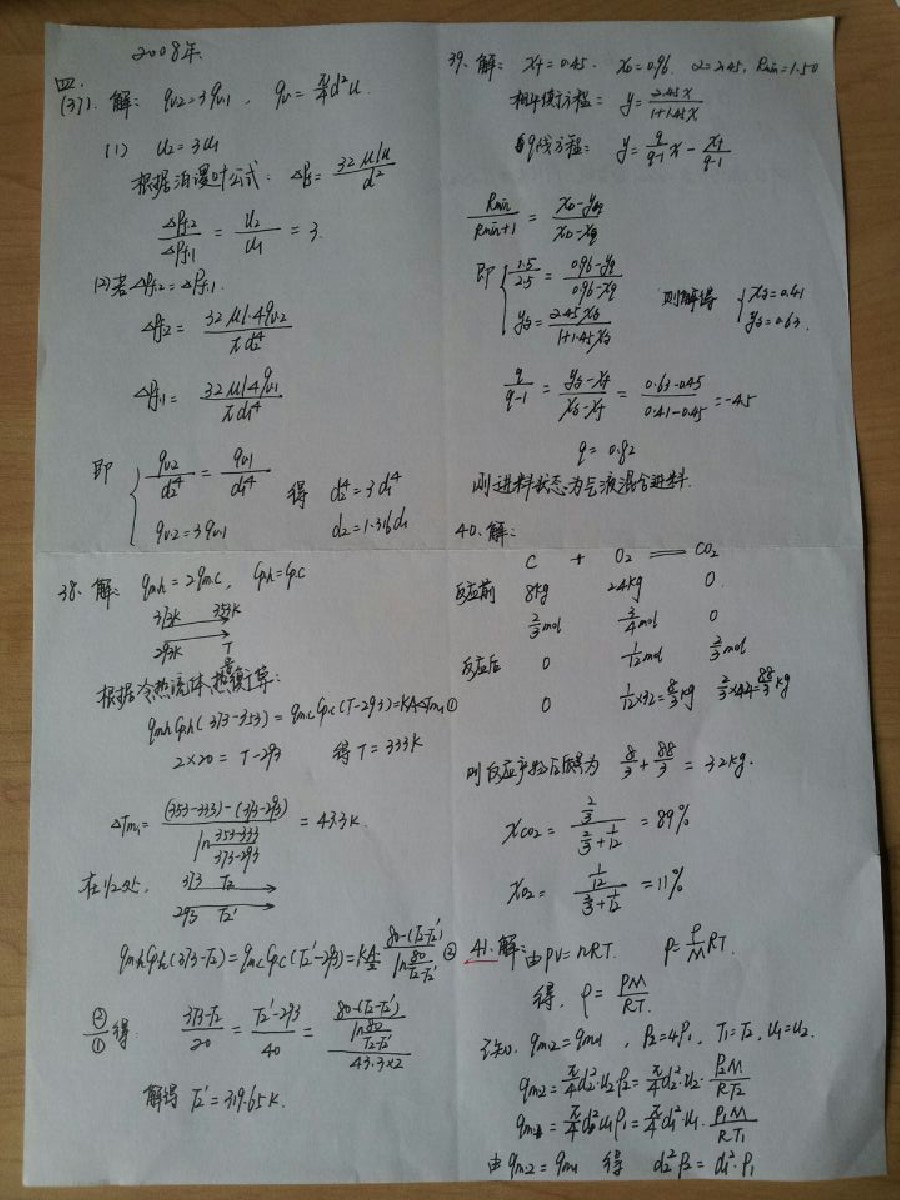 2008年.
四.
(37). 解: qv2=3qv1 , qv=π/4 d²u.
(1) u2=3u1
根据泊谡叶公式: △Pf=32μlu/d²
△Pf2/△Pf1 = u2/u1 = 3
(2)若△Pf2=△Pf1.
△Pf2= 32μl·4qv2/πd2⁴
△Pf1= 32μl·4qv1/πd1⁴
即 { qv2/d2⁴ = qv1/d1⁴ 得 d2⁴=3d1⁴
qv2=3qv1 d2=1.316d1
38. 解: qmh=2qmc, Cph=Cpc
373K 353K
293K T
根据冷热流体热量衡算:
qmhCph(373-353)=qmcCpc(T-293)=KA△Tm1 ①
2×20= T-293 得T=333K
△Tm1= (353-333)-(373-293)/ln 353-333/373-293 = 43.3K.
在1/2处. 373 T2
293 T2'
qmhCph(373-T2)=qmcCpc(T2'-293)=K A/2 80-(T2-T2')/ln 80/T2-T2' ②
②/① 得 373-T2/20 = T2'-293/40 = 80-(T2-T2')/ln 80/T2-T2' /43.3×2
解得 T2'=319.65K.
39. 解: xf=0.45. xD=0.96. α=2.45, Rmin=1.50
相平衡方程= y=2.45x/1+1.45x
q线方程: y= q/q-1 x - xf/q-1
Rmin/Rmin+1 = xD-yq/xD-xq
即 { 1.5/2.5 = 0.96-yq/0.96-xq 则解得 { xq=0.41
yq=2.45xq/1+1.45xq yq=0.63.
q/q-1 = yq-xf/xq-xf = 0.63-0.45/0.41-0.45 =-4.5
q=0.82
则进料状态为气液混合进料.
40. 解:
C + O2 == CO2
反应前 8kg 24kg 0.
2/3mol 3/4mol 0
反应后 0 1/12mol 2/3mol
0 1/12×32=8/3kg 2/3×44=88/3kg
则反应产物总质量为 8/3+88/3 = 32kg.
xCO2= 2/3 / 2/3+1/12 =89%
xO2= 1/12 / 2/3+1/12 =11%
41. 解: 由PV=nRT. P=ρ/M RT.
得, ρ= PM/RT.
已知. qm2=qm1 , P2=4P1, T1=T2, u1=u2.
qm2=π/4 d2²·u2ρ2=π/4 d2²·u2· P2M/RT2
qm1=π/4 d1²u1ρ1=π/4 d1²·u1· P1M/RT1
由qm2=qm1 得 d2²P2=d1²·P1